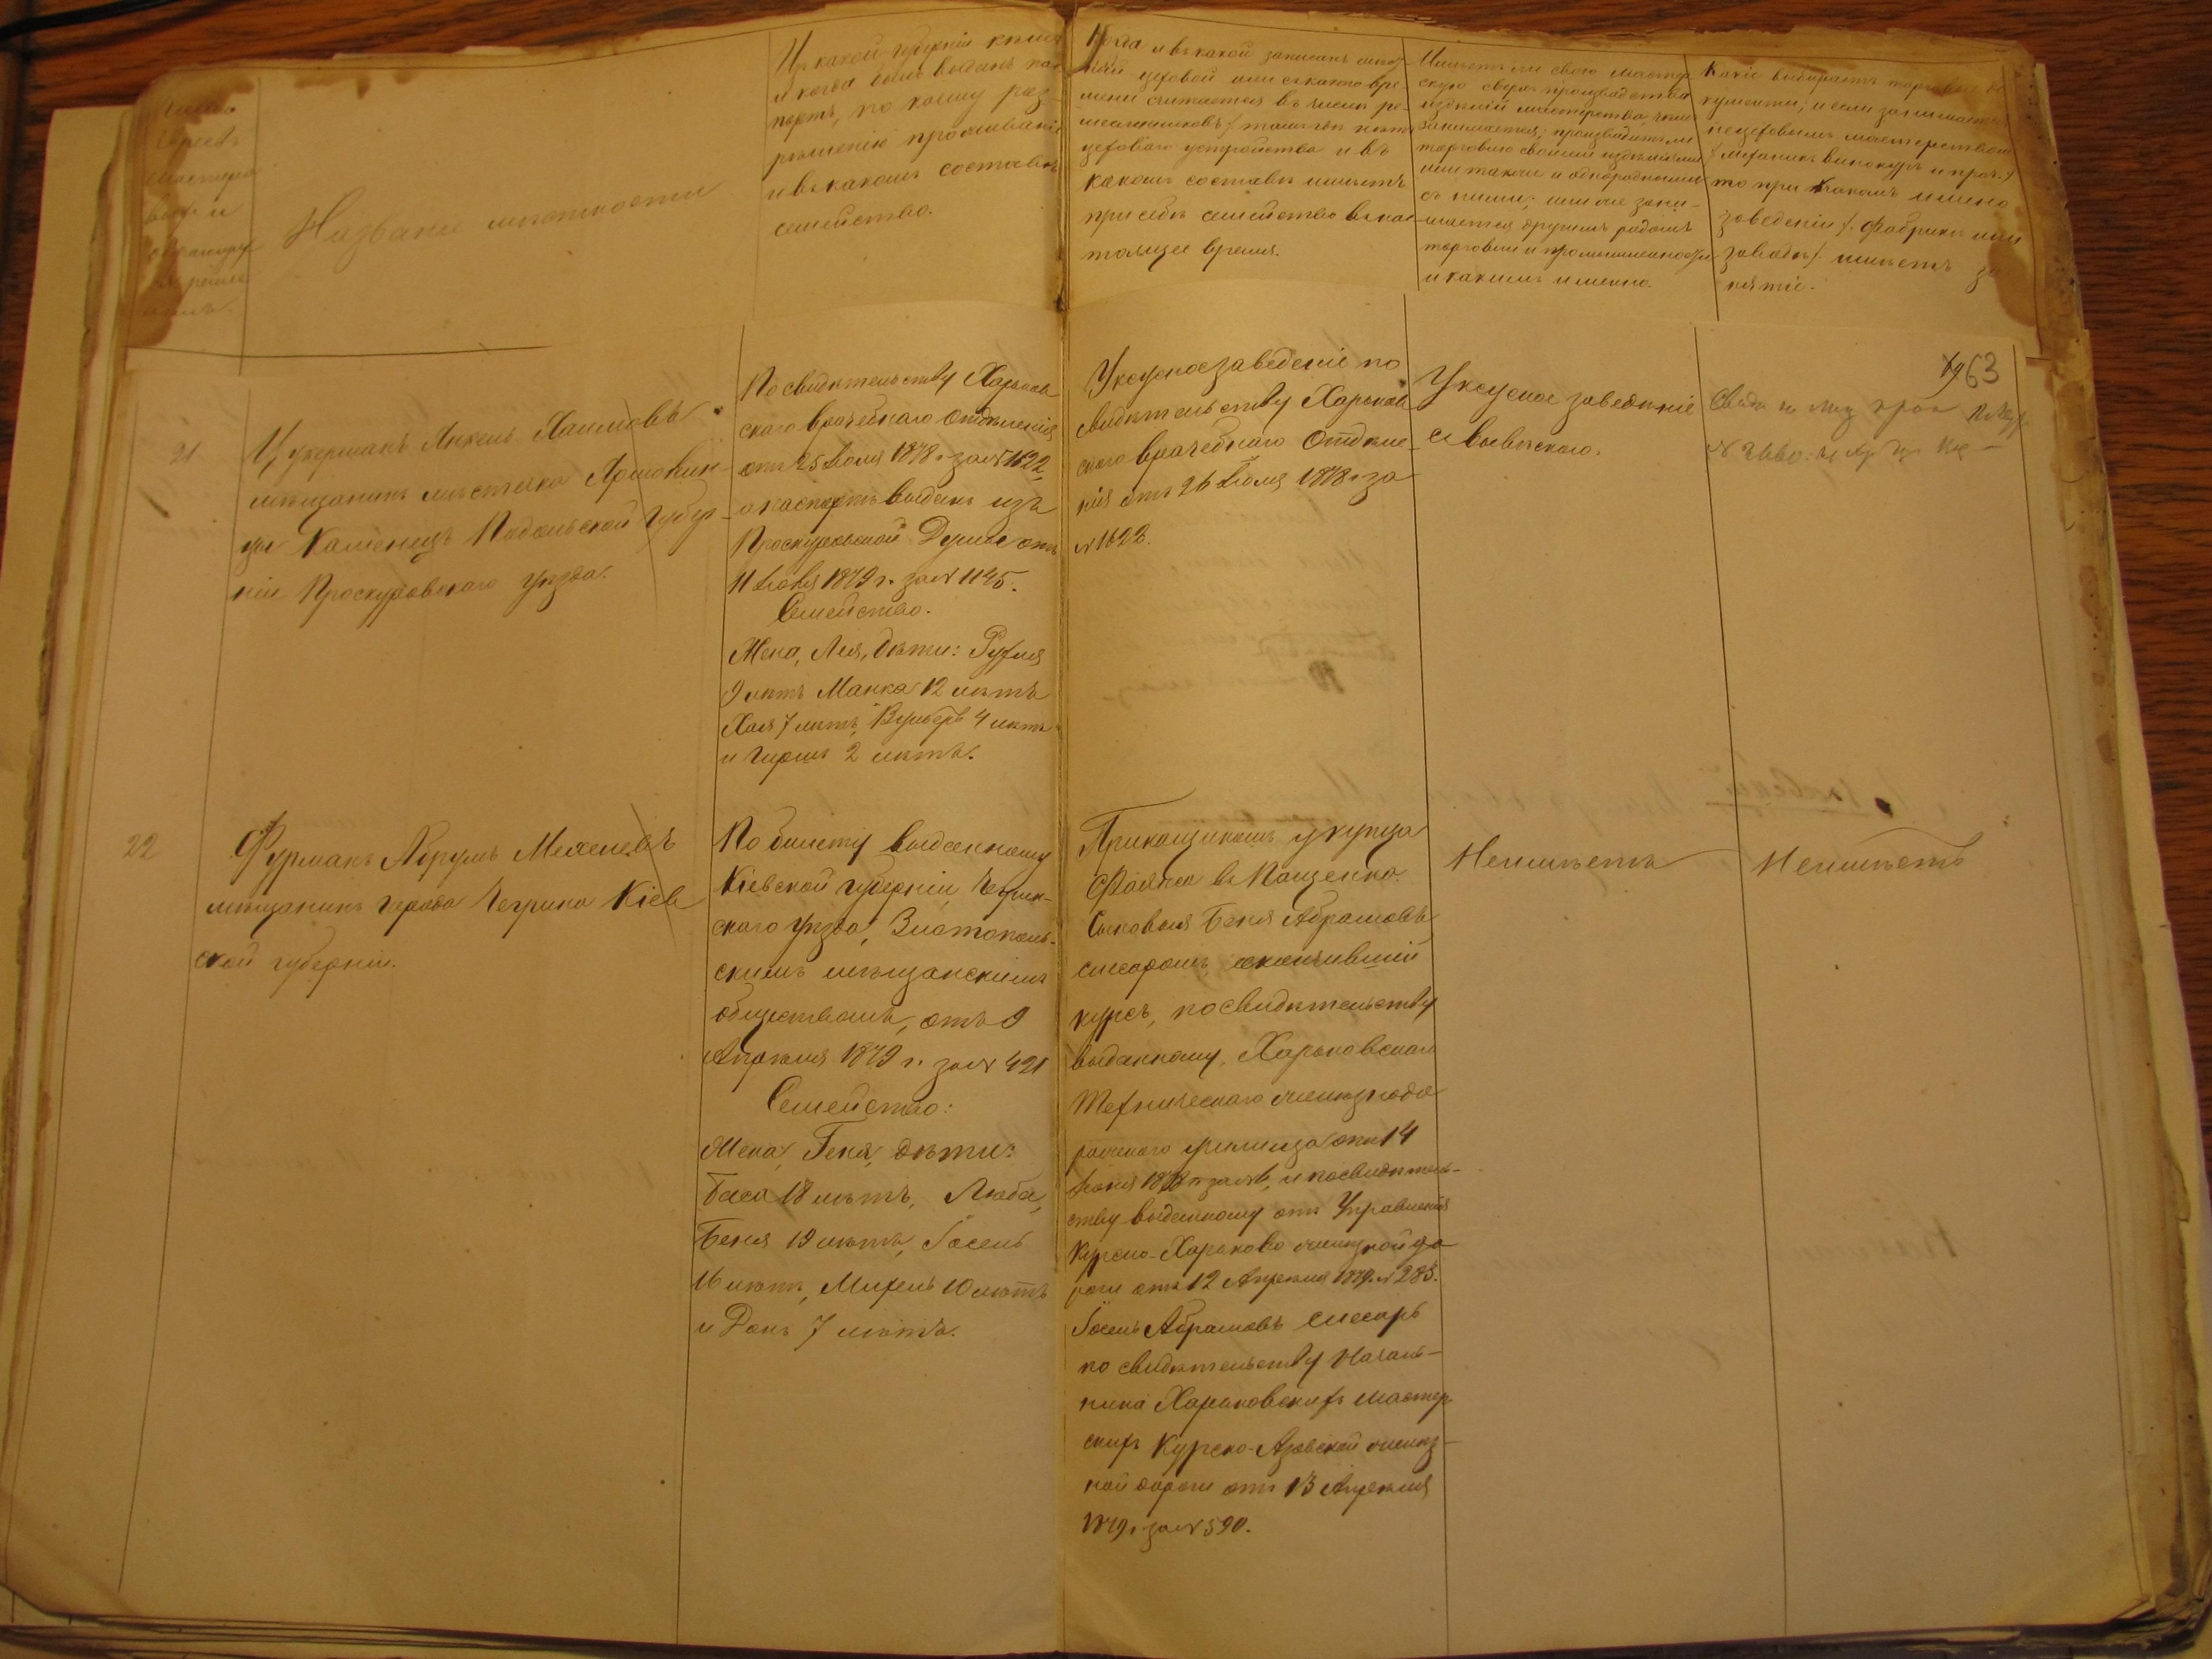 Названіе мѣстности
Изъ какой губерніи
и когда былъ выданъ
портъ, по коему раз-
рѣшенію проживаніе
и въ какомъ составѣ
семейство.
Когда и въ какой записанъ
цеховой или съ какого вре-
мени считается въ числѣ ре-
месленниковъ /тамъ гдѣ нѣтъ
цеховаго устройства и въ
какомъ составѣ имѣетъ
при себѣ семейство въ нас-
тоящее время.
Имѣетъ ли свою мастер-
скую сверхъ производства
издѣлій мастерства, чѣмъ
занимается; производитъ ли
торговлю своими издѣліями
или такими и однородными
съ ними; или же зани-
мается другимъ родомъ
торговли и промышленности
и какимъ именно.
Какіе выбираетъ торговые до-
кументы; и если занимается
нецеховымъ мастерствомъ
/механикъ винокуръ и проч./
то при какомъ именно
заведеніи /. фабрикѣ или
заводѣ/ имѣетъ за-
нятіе.
63
21
Цукерманъ Анкель Хаимовъ
мѣщанинъ мѣстечка
цы Каменецъ Подольской Губер-
ніи Проскуровскаго уѣзда.
По свидѣтельству Харьков
скаго врачебнаго отдѣленія
отъ 25 Іюля 1878 г. за № 1622,
а паспортъ выданъ изъ
Проскуровской Думы отъ
11 Іюня 1879 г. за № 1145.
Семейство.
Жена, Лея, дѣти: Рухля
9 лѣтъ Манка 12 лѣтъ
Хая 7 лѣтъ, 4 лѣтъ
и Гершъ 2 лѣтъ.
Уксусное заведеніе по
свидѣтельству Харьков
скаго врачебнаго Отдѣле-
нія отъ 26 Іюля 1878 г. за
№ 1622.
Уксусное заведеніе
Свид на
№ 2660.
22
Фурманъ Абрумъ Мехелевъ
мѣщанинъ города Чегрина Кіев
ской губерніи.
По билету выданному
Кіевской губерніи, Чегрин-
скаго уѣзда, Златополь-
скимъ мѣщанскимъ
обществомъ, отъ 9
Апрѣля 1879 г. за № 421
Семейство:
Жена, Геня, дѣти:
Бася 18 лѣтъ, Люба,
Беня 19 лѣтъ, Іосель
16 лѣтъ, Михель 10 лѣтъ
и Данъ 7 лѣтъ.
Прикащикомъ у купца
Файна в. Пащенко.
Сыновья Беня Абрамовъ
слесаромъ, окончившій
курсъ, по свидѣтельству
выданному, Харьковскаго
Техническаго желѣзнодо
рожнаго училища отъ 14
Іюня 1878 г. за № 6, и по свидѣтель-
ству выданному отъ Управленія
Курско-Харьково желѣзной до-
роги отъ 12 Апрѣля 1879. № 285.
Іосель Абрамовъ слесарь
по свидѣтельству Началь-
ника Харьковскихъ мастер-
скихъ Курско-Азовской желѣз-
ной дороги отъ 13 Апрѣля
1879 г. за № 590.
Неимѣетъ
Неимѣетъ